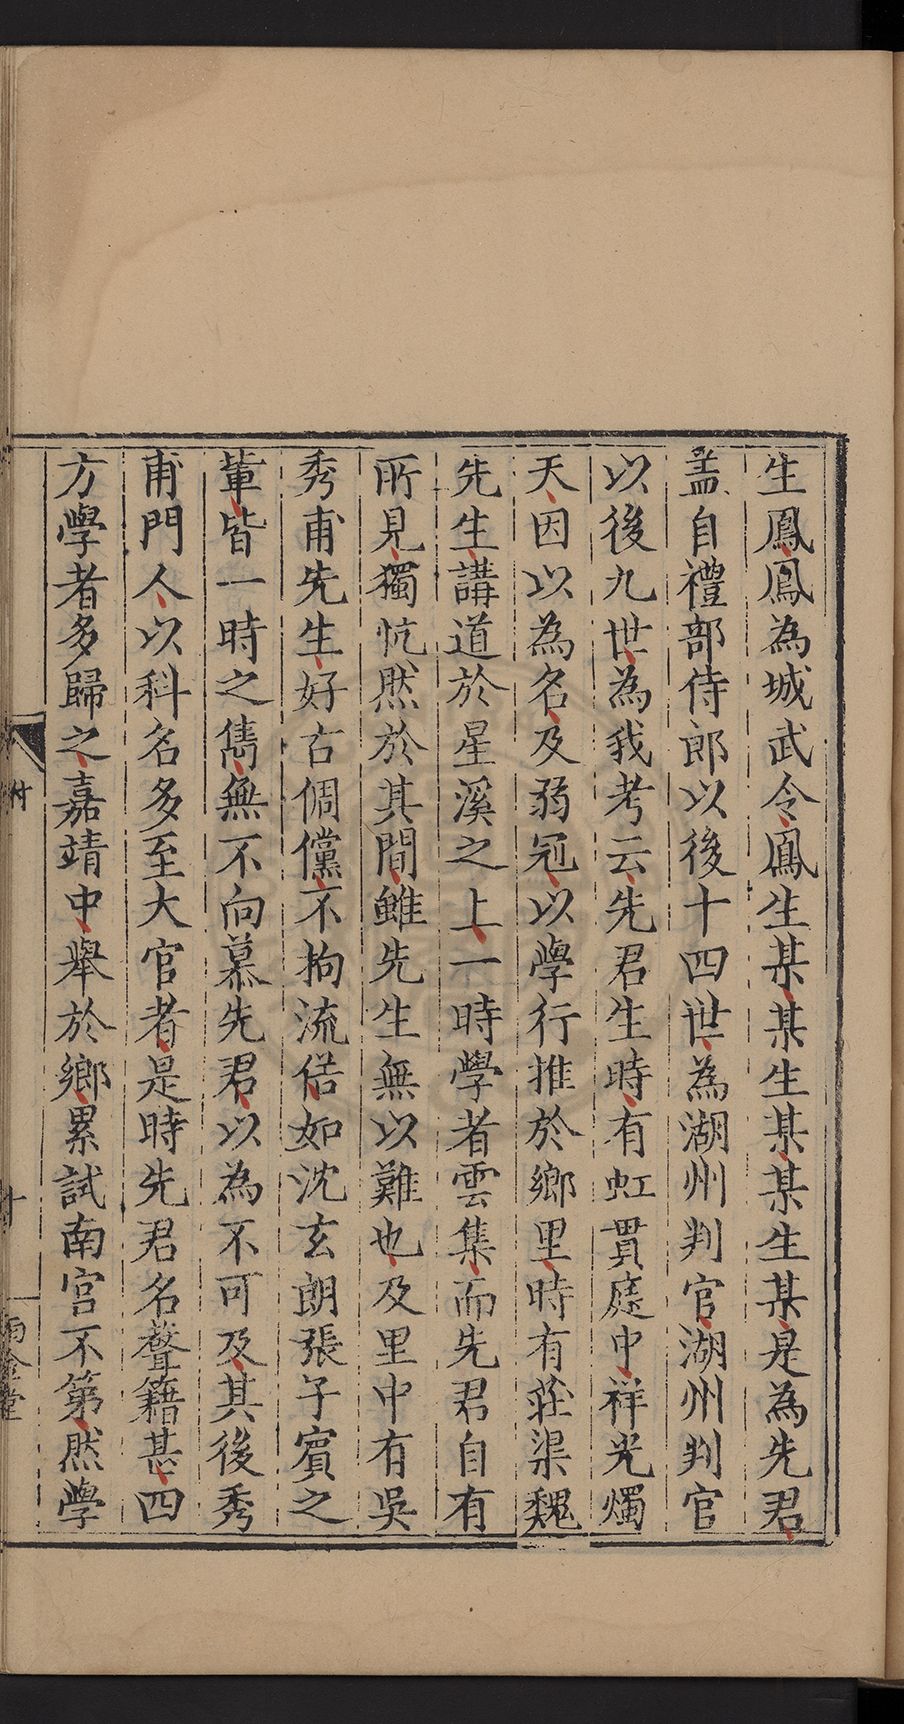 生鳳鳳為城武令鳳生某某生某某生某是為先君
盖自禮部侍郎以後十四世為湖州判官湖州判官
以後九世為我考云先君生時有虹貫庭中祥光燭
天因以為名及弱冠以學行推於鄉里時有莊渠魏
先生講道於星溪之上一時學者雲集而先君自有
所見獨忼然於其間雖先生無以難也及里中有吳
秀甫先生好古倜儻不拘流俗如沈玄朗張子賓之
輩皆一時之雋無不向慕先君以為不可及其後秀
甫門人以科名多至大官者是時先君名聲籍甚四
方學者多歸之嘉靖中舉於鄉累試南宮不第然學